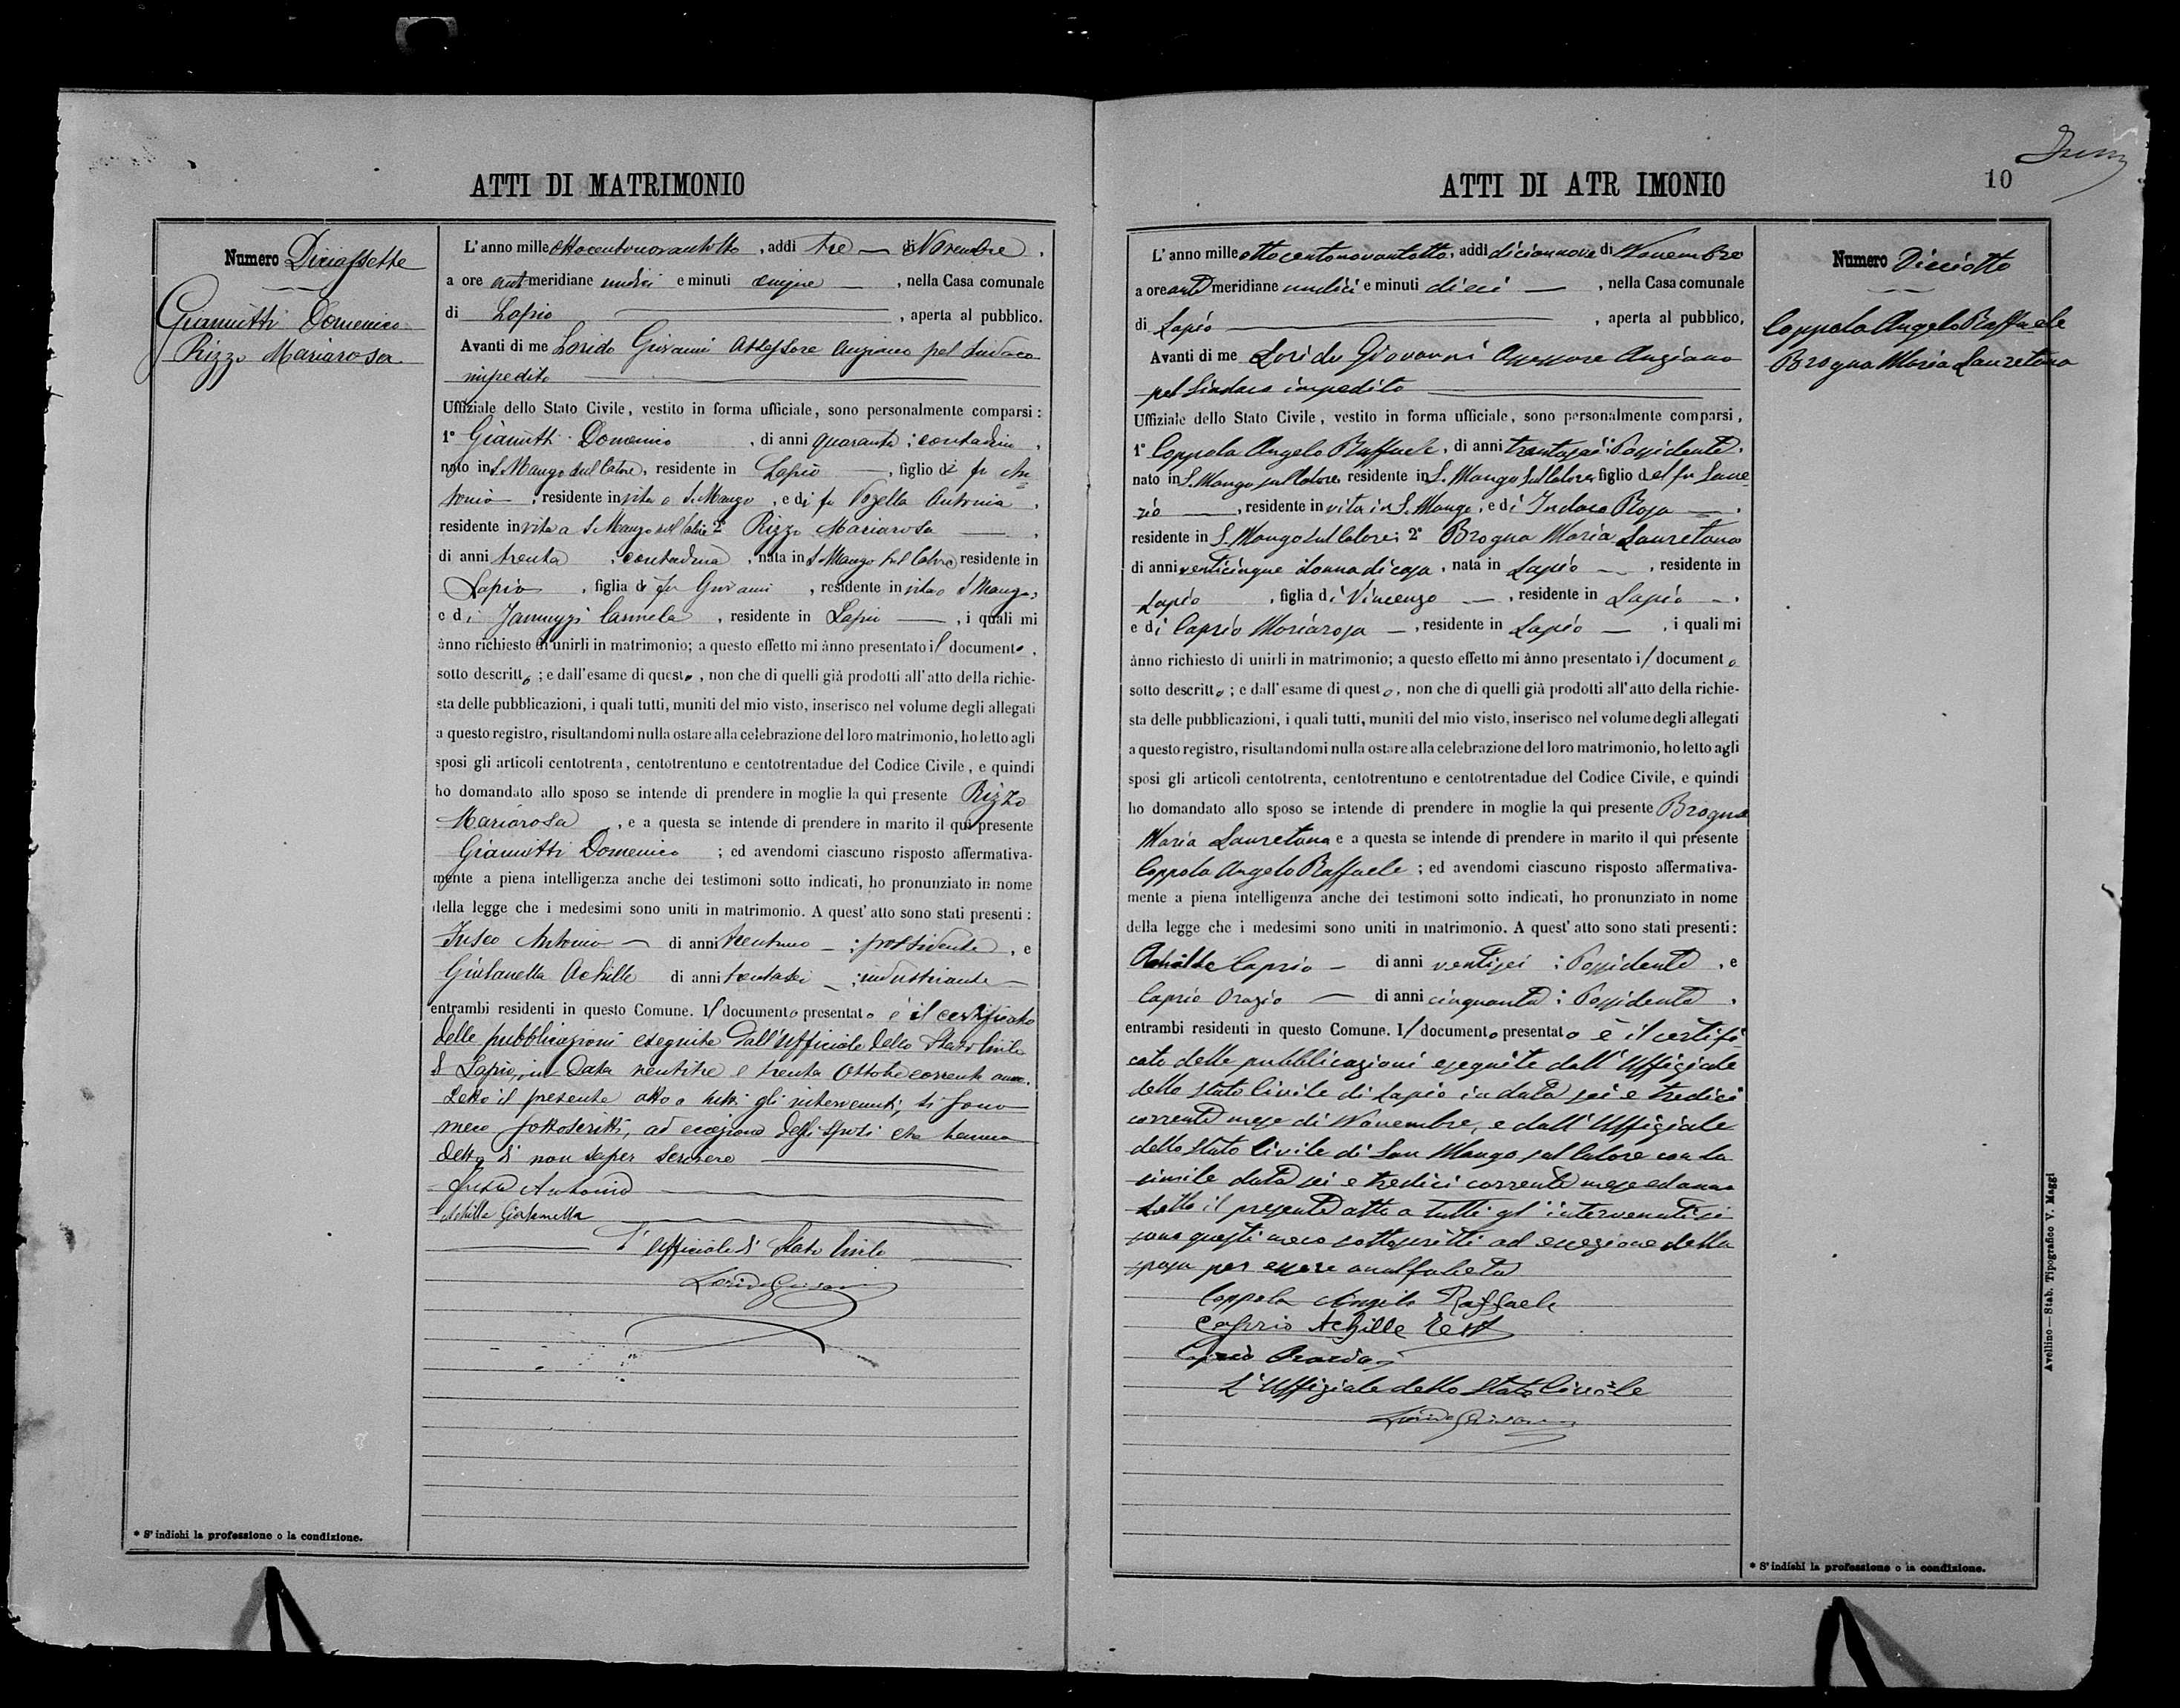 ATTI DI MATRIMONIO
Numero Diciassette
Giannitti Domenico
Rizzo Mariarosa
L'anno mille ottocentonovantotto, addi tre di Novembre,
a ore antmeridiane undici e minuti cinque, nella Casa comunale
di Lapio, aperta al pubblico.
Avanti di me Lorido Giovanni Assessore Anziano pel Sindaco
impedito
Uffiziale dello Stato Civile, vestito in forma ufficiale, sono personalmente comparsi:
1° Giannitti Domenico, di anni quaranta; contadino,
nato in S. Mango sul Calore, residente in Lapio, figlio di fu An
tonio, residente in vita a S. Mango, e di fu Vozella Antonia,
residente in vita a S. Mango sul Calore 2° Rizzo Mariarosa,
di anni trenta; contadina, nata in S. Mango sul Calore residente in
Lapio, figlia di fu Giovanni, residente in vita a S. Mango,
e di Jannuzzi Carmela, residente in Lapio, i quali mi
ànno richiesto di unirli in matrimonio; a questo effetto mi ànno presentato il documento,
sotto descritto; e dall'esame di questo, non che di quelli già prodotti all'atto della richie-
sta delle pubblicazioni, i quali tutti, muniti del mio visto, inserisco nel volume degli allegati
a questo registro, risultandomi nulla ostare alla celebrazione del loro matrimonio, ho letto agli
sposi gli articoli centotrenta, centotrentuno e centotrentadue del Codice Civile, e quindi
ho domandato allo sposo se intende di prendere in moglie la qui presente Rizzo
Mariarosa, e a questa se intende di prendere in marito il qui presente
Giannitti Domenico; ed avendomi ciascuno risposto affermativa-
mente a piena intelligenza anche dei testimoni sotto indicati, ho pronunziato in nome
della legge che i medesimi sono uniti in matrimonio. A quest'atto sono stati presenti:
Antonio di anni trentuno; possidente, e
Achille di anni trentasei; industriante
entrambi residenti in questo Comune. Il documento presentato è il certificato
delle pubblicazioni eseguite dall'Ufficiale dello Stato Civile
di Lapio, in data ventitre e trenta Ottobre corrente anno.
Letto il presente atto a tutti gli intervenuti, si sono
meco sottoscritti, ad eccezione degli sposi che hanno
detto di non saper scrivere
Antonio
Achille
L'Ufficiale di Stato Civile
Lorido Giovanni
* S'indichi la professione o la condizione.
ATTI DI ATR IMONIO
10
Numero Diciotto
Coppola Angelo Raffaele
Brogna Maria Lauretana
L'anno mille ottocentonovantotto, addi diciannove di Novembre
a ore antemeridiane undici e minuti dieci, nella Casa comunale
di Lapio, aperta al pubblico,
Avanti di me Lorido Giovanni Assessore Anziano
pel Sindaco impedito
Uffiziale dello Stato Civile, vestito in forma ufficiale, sono personalmente comparsi,
1° Coppola Angelo Raffaele, di anni trentasei; Possidente,
nato in S. Mango sul Calore, residente in S. Mango sul Calore, figlio del fu Save
rio, residente in vita in S. Mango, e di Rosa,
residente in S. Mango sul Calore; 2° Brogna Maria Lauretana
di anni venticinque donna di casa, nata in Lapio, residente in
Lapio, figlia di Vincenzo, residente in Lapio,
e di Caprio Mariarosa, residente in Lapio, i quali mi
ànno richiesto di unirli in matrimonio; a questo effetto mi ànno presentato il documento
sotto descritto; e dall'esame di questo, non che di quelli già prodotti all'atto della richie-
sta delle pubblicazioni, i quali tutti, muniti del mio visto, inserisco nel volume degli allegati
a questo registro, risultandomi nulla ostare alla celebrazione del loro matrimonio, ho letto agli
sposi gli articoli centotrenta, centotrentuno e centotrentadue del Codice Civile, e quindi
ho domandato allo sposo se intende di prendere in moglie la qui presente Brogna
Maria Lauretana e a questa se intende di prendere in marito il qui presente
Coppola Angelo Raffaele; ed avendomi ciascuno risposto affermativa-
mente a piena intelligenza anche dei testimoni sotto indicati, ho pronunziato in nome
della legge che i medesimi sono uniti in matrimonio. A quest'atto sono stati presenti:
Achille Caprio di anni ventisei; Possidente, e
Caprio Orazio di anni cinquanta; Possidente,
entrambi residenti in questo Comune. Il documento presentato è il certifi
cato delle pubblicazioni eseguite dall'Uffiziale
dello Stato Civile di Lapio in data sei e tredici
corrente mese di Novembre, e dall'Uffiziale
dello Stato Civile di San Mango sul Calore con la
simile data sei e tredici corrente mese ed anno
Letto il presente atto a tutti gl'intervenuti si
sono questi meco sottoscritti ad eccezione della
sposa per essere analfabeta
Coppola Angelo Raffaele
Caprio Achille Test
Caprio
L'Uffiziale dello Stato Civile
Lorido Giovanni
* S'indichi la professione o la condizione.
Avellino—Stab. Tipografico V. Maggi